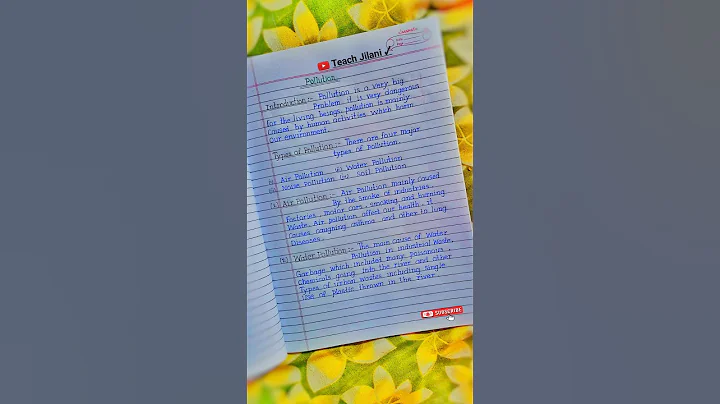 Teach Jilani
Pollution
Introduction :- Pollution is a very big
Problem it is very dangerous
for the living beings, pollution is mainly
Caused by human activities which harm
our environment.
Types of Pollution :- There are four major
types of Pollution.
(i) Air Pollution (ii) Water Pollution
(iii) Noise Pollution (iv) Soil Pollution
Air Pollution :- Air Pollution mainly caused
By the smoke of industries,
Factories, motor cars, smoking and burning
Waste, Air pollution affect our health, it
Causes caughing, asthma and other to lung
Diseases.
Water Pollution :- The main cause of Water
Pollution in industrial Waste,
Garbage which included many Poisonous,
Chemicals going Into the river and other
Types of urban wastes including single
Use of plastic thrown in the river.
SUBSCRIBE